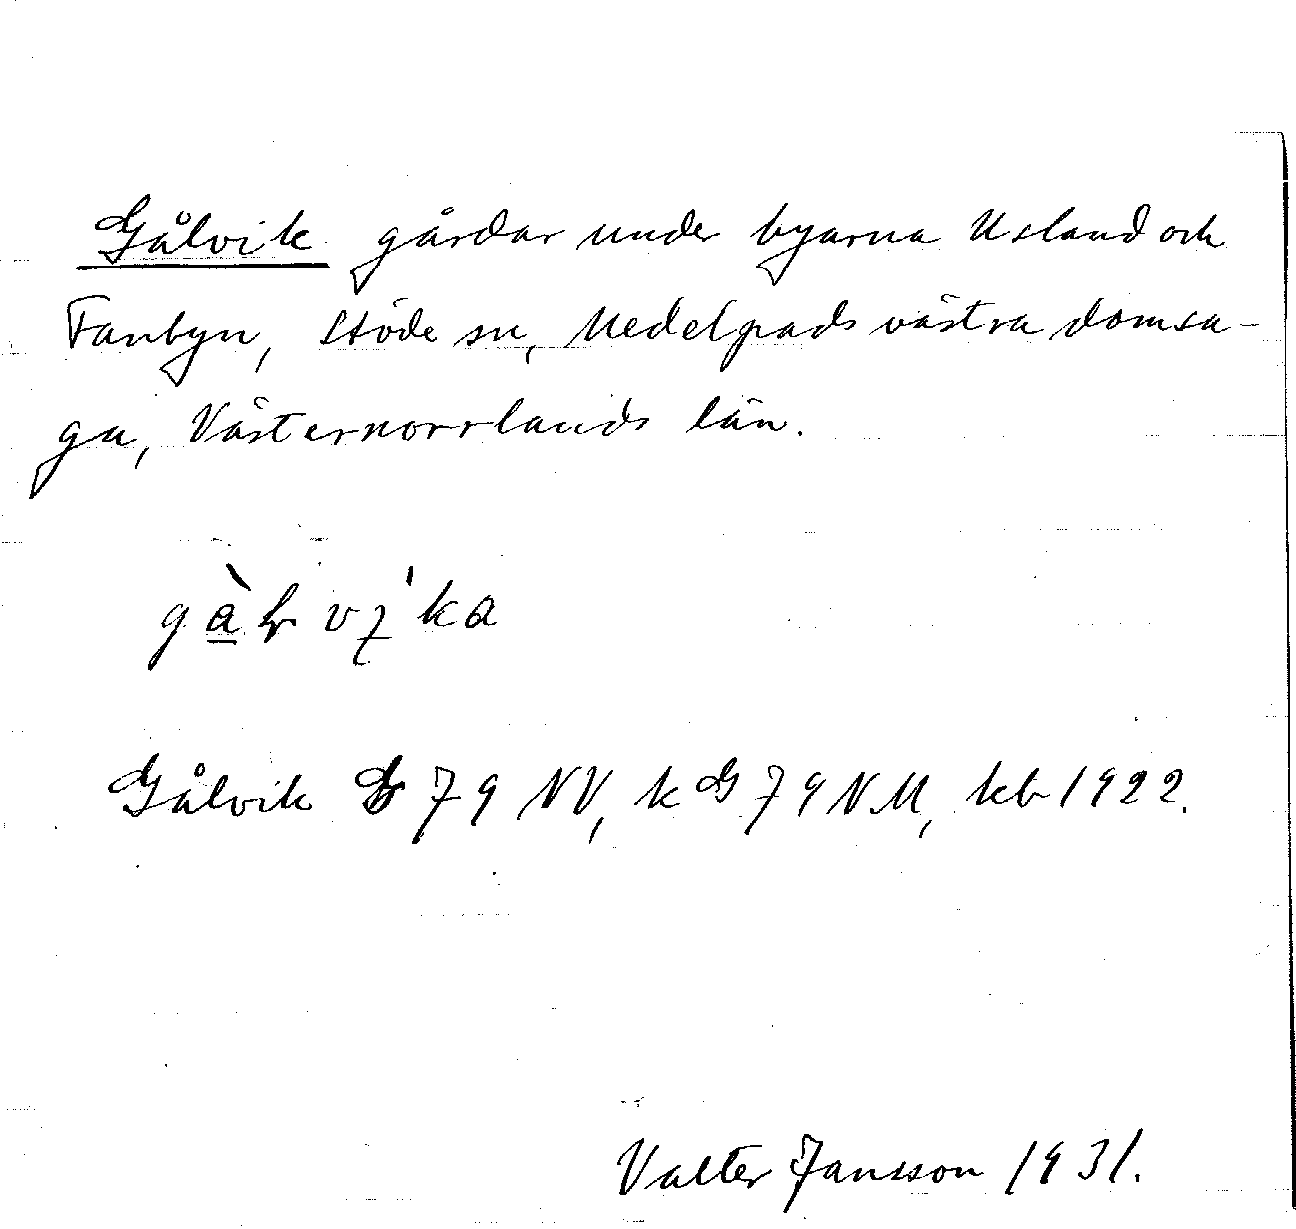 Gålvik gårdar under byarna Usland och
Fanbyn, Stöde sn, Medelpads västra domsa-
ga, Västernorrlands län.
Gålvik G 79 NV, k G 79 NM, kb 1922.
Valter Jansson 1931.